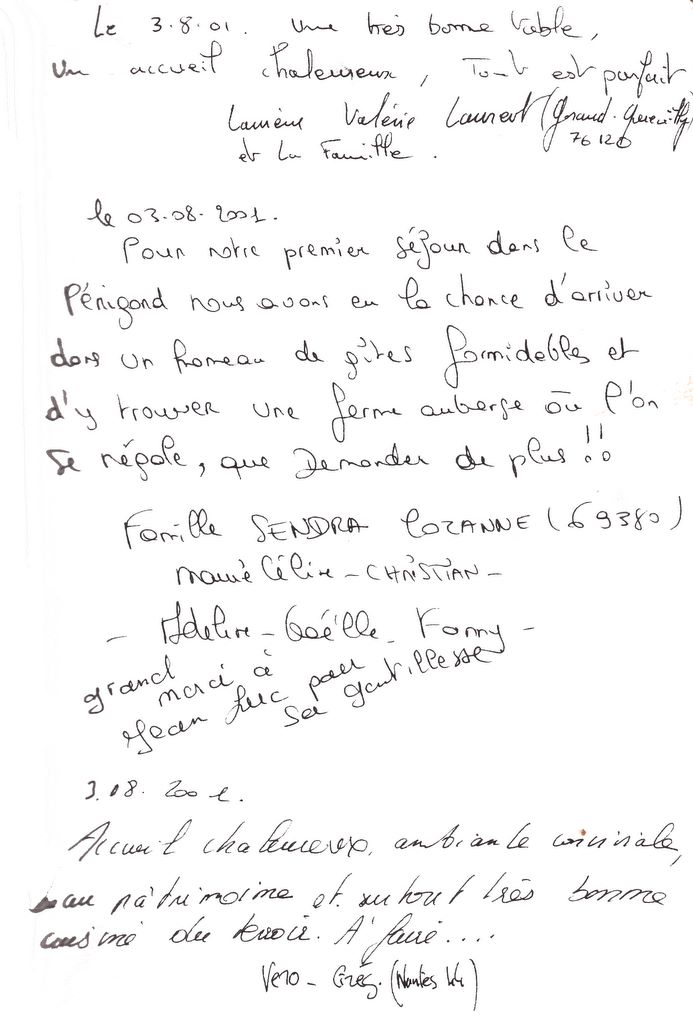 Le 3.8.01. Une très bonne table,
Un accueil chaleureux, Tout est parfait
Valérie Laurent (Grand-Quevilly
76120
et La Famille.
le 03.08.2001.
Pour notre premier séjour dans le
Périgord nous avons eu la chance d'arriver
dans un hameau de gîtes formidables et
d'y trouver une ferme auberge où l'on
se régale, que Demander de plus !!
Famille SENDRA COZANNE (69380)
Marie Céline - CHRISTIAN -
- Adeline - Gaëlle - Fanny -
grand
merci à
Jean Luc pour
sa gentillesse
3.08.2001.
Accueil chaleureux, ambiance conviviale,
beau patrimoine et surtout très bonne
cuisine du terroir. A faire....
Vero - Grég. (Nantes 44)